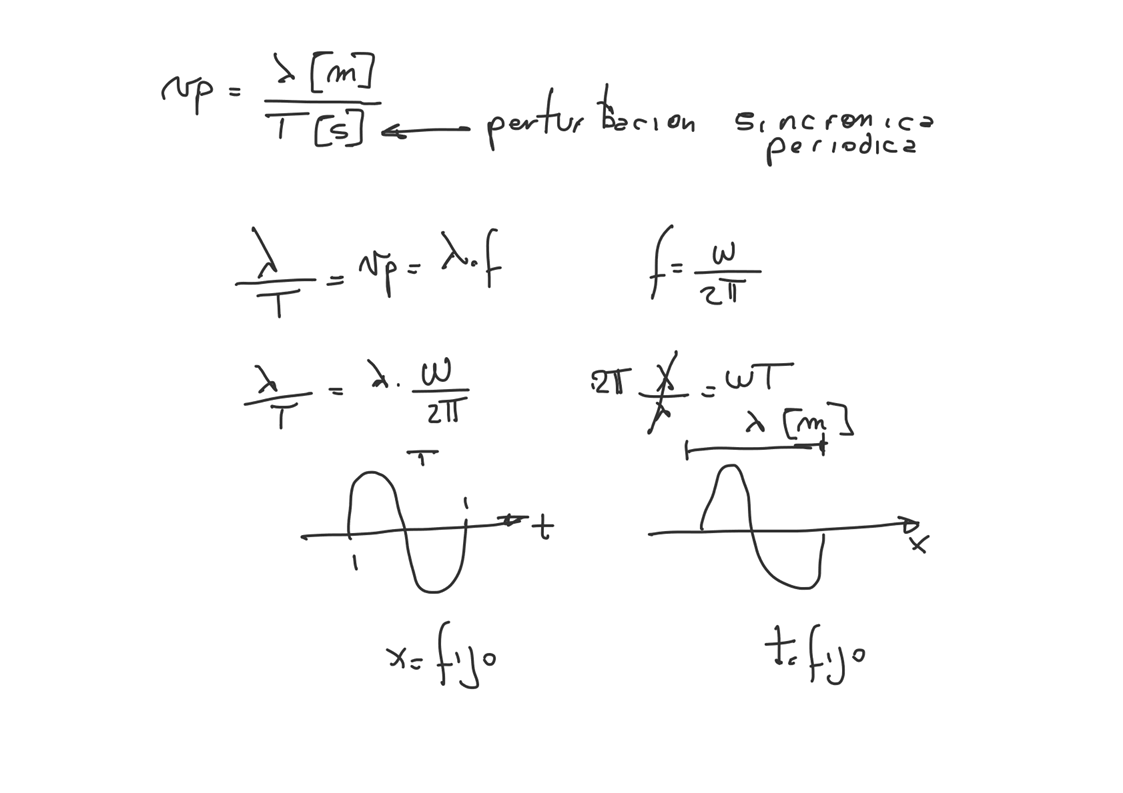 vp = λ [m] / T [s] ← perturbacion sincronica
periodica
λ / T = vp = λ . f
f = ω / 2π
λ / T = λ . ω / 2π
2π λ / λ = ωT
λ [m]
T
t
x
x = fijo
t = fijo